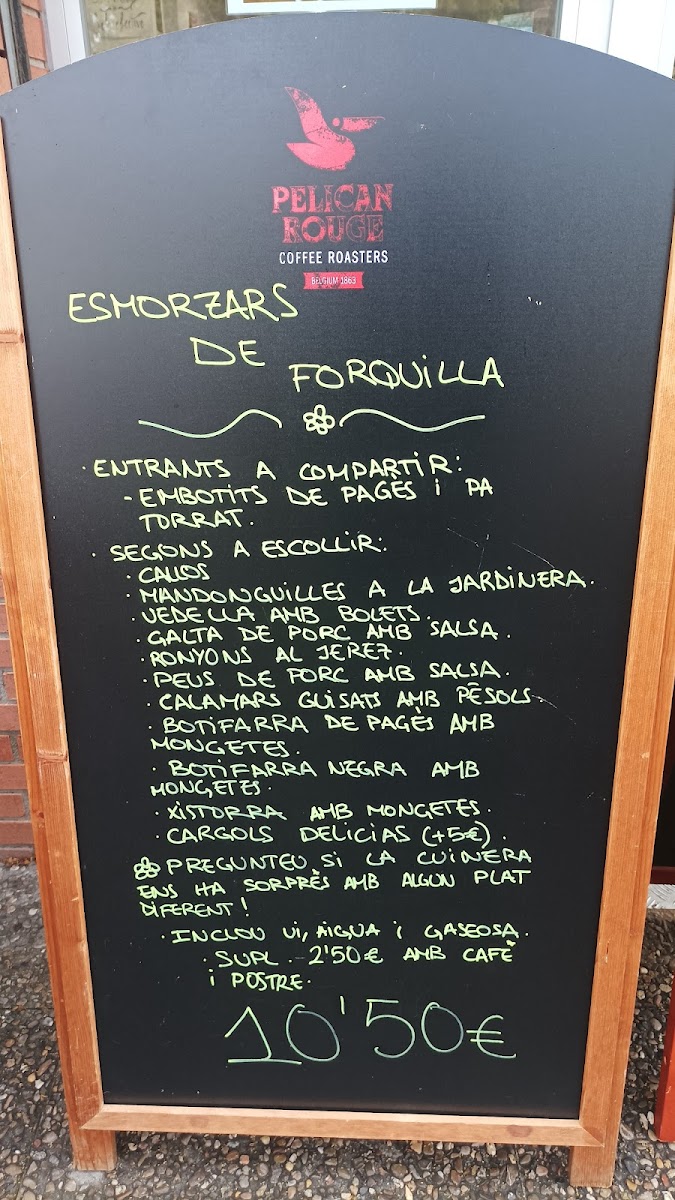 PELICAN
ROUGE
COFFEE ROASTERS
BELGIUM 1863
ESMORZARS
DE
FORQUILLA
· ENTRANTS A COMPARTIR:
- EMBOTITS DE PAGÈS i PA
TORRAT.
· SEGONS A ESCOLLIR:
· CALLOS
· MANDONGUILLES A LA JARDINERA.
· VEDELLA AMB BOLETS.
· GALTA DE PORC AMB SALSA.
· RONYONS AL JEREZ.
· PEUS DE PORC AMB SALSA.
· CALAMARS GUISATS AMB PÈSOLS.
· BOTIFARRA DE PAGÈS AMB
MONGETES.
· BOTIFARRA NEGRA AMB
MONGETES.
· XISTORRA AMB MONGETES.
· CARGOLS DELICIAS (+5€).
PREGUNTEU SI LA CUINERA
ENS HA SORPRÈS AMB ALGUN PLAT
DIFERENT!
· INCLOU VI, AIGUA i GASEOSA.
· SUPL. - 2'50€ AMB CAFÈ
i POSTRE.
10'50€